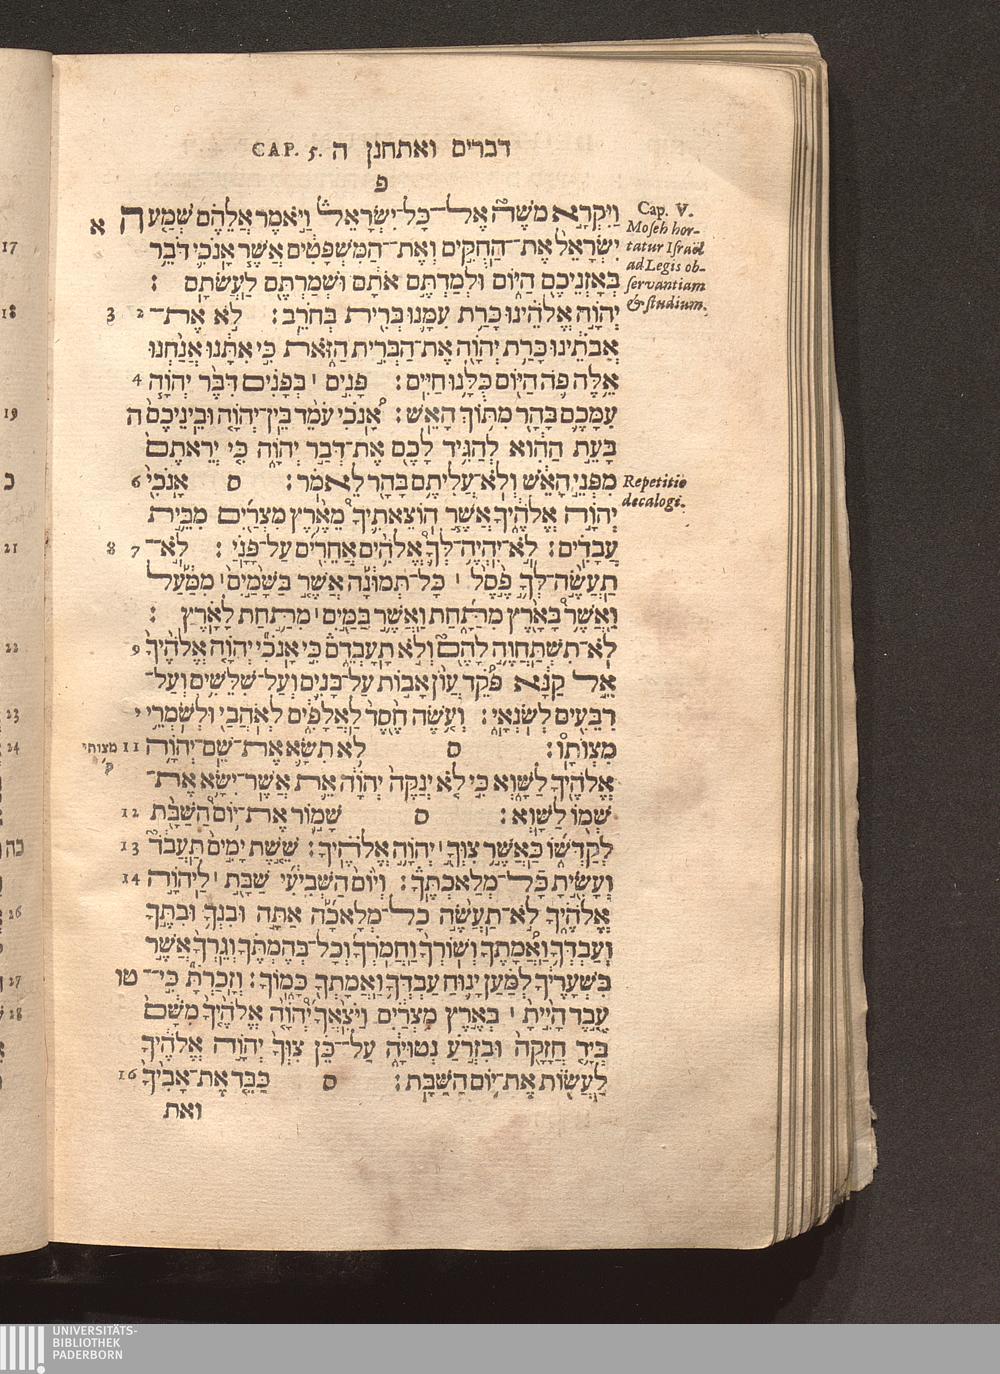 דברים ואתחנן ה CAP. 5.
פ
וַיִּקְרָא מֹשֶׁה אֶל־כָּל־יִשְׂרָאֵל וַיֹּאמֶר אֲלֵהֶם שְׁמַע ה א
יִשְׂרָאֵל אֶת־הַחֻקִּים וְאֶת־הַמִּשְׁפָּטִים אֲשֶׁר אָנֹכִי דֹּבֵר
בְּאָזְנֵיכֶם הַיּוֹם וּלְמַדְתֶּם אֹתָם וּשְׁמַרְתֶּם לַעֲשֹׂתָם :
יְהוָֹה אֱלֹהֵינוּ כָּרַת עִמָּנוּ בְּרִית בְּחֹרֵב : לֹא אֶת־ 2 3
אֲבֹתֵינוּ כָּרַת יְהוָֹה אֶת־הַבְּרִית הַזֹּאת כִּי אִתָּנוּ אֲנַחְנוּ
אֵלֶּה פֹה הַיּוֹם כֻּלָּנוּ חַיִּים : פָּנִים ׀ בְּפָנִים דִּבֶּר יְהוָֹה 4
עִמָּכֶם בָּהָר מִתּוֹךְ הָאֵשׁ : אָנֹכִי עֹמֵד בֵּין־יְהוָֹה וּבֵינֵיכֶם ה
בָּעֵת הַהִוא לְהַגִּיד לָכֶם אֶת־דְּבַר יְהוָֹה כִּי יְרֵאתֶם
מִפְּנֵי הָאֵשׁ וְלֹא־עֲלִיתֶם בָּהָר לֵאמֹר : ס אָנֹכִי 6
יְהוָֹה אֱלֹהֶיךָ אֲשֶׁר הוֹצֵאתִיךָ מֵאֶרֶץ מִצְרַיִם מִבֵּית
עֲבָדִים : לֹא־יִהְיֶה־לְךָ אֱלֹהִים אֲחֵרִים עַל־פָּנָי : לֹא־ 7 8
תַעֲשֶׂה־לְךָ פֶסֶל ׀ כָּל־תְּמוּנָה אֲשֶׁר בַּשָּׁמַיִם ׀ מִמַּעַל
וַאֲשֶׁר בָּאָרֶץ מִתָּחַת וַאֲשֶׁר בַּמַּיִם ׀ מִתַּחַת לָאָרֶץ :
לֹא־תִשְׁתַּחֲוֶה לָהֶם וְלֹא תָעָבְדֵם כִּי אָנֹכִי יְהוָֹה אֱלֹהֶיךָ 9
אֵל קַנָּא פֹּקֵד עֲוֹן אָבוֹת עַל־בָּנִים וְעַל־שִׁלֵּשִׁים וְעַל־
רִבֵּעִים לְשֹׂנְאָי : וְעֹשֶׂה חֶסֶד לַאֲלָפִים לְאֹהֲבַי וּלְשֹׁמְרֵי י
מִצְוֹתָו : ס לֹא תִשָּׂא אֶת־שֵׁם־יְהוָֹה 11 מצותי
ק׳
אֱלֹהֶיךָ לַשָּׁוְא כִּי לֹא יְנַקֶּה יְהוָֹה אֵת אֲשֶׁר־יִשָּׂא אֶת־
שְׁמוֹ לַשָּׁוְא : ס שָׁמוֹר אֶת־יוֹם הַשַּׁבָּת 12
לְקַדְּשׁוֹ כַּאֲשֶׁר צִוְּךָ ׀ יְהוָֹה אֱלֹהֶיךָ : שֵׁשֶׁת יָמִים תַּעֲבֹד 13
וְעָשִׂיתָ כָּל־מְלַאכְתֶּךָ : וְיוֹם הַשְּׁבִיעִי שַׁבָּת ׀ לַיהוָֹה 14
אֱלֹהֶיךָ לֹא־תַעֲשֶׂה כָל־מְלָאכָה אַתָּה וּבִנְךָ וּבִתֶּךָ
וְעַבְדְּךָ וַאֲמָתֶךָ וְשׁוֹרְךָ וַחֲמֹרְךָ וְכָל־בְּהֶמְתֶּךָ וְגֵרְךָ אֲשֶׁר
בִּשְׁעָרֶיךָ לְמַעַן יָנוּחַ עַבְדְּךָ וַאֲמָתְךָ כָּמוֹךָ : וְזָכַרְתָּ כִּי־ טו
עֶבֶד הָיִיתָ ׀ בְּאֶרֶץ מִצְרַיִם וַיֹּצִאֲךָ יְהוָֹה אֱלֹהֶיךָ מִשָּׁם
בְּיָד חֲזָקָה וּבִזְרֹעַ נְטוּיָה עַל־כֵּן צִוְּךָ יְהוָֹה אֱלֹהֶיךָ
לַעֲשׂוֹת אֶת־יוֹם הַשַּׁבָּת : ס כַּבֵּד אֶת־אָבִיךָ 16
ואת
Cap. V.
Moseh hor-
tatur Israël
ad Legis ob-
servantiam
& studium.
Repetitio
decalogi.
17
18
19
כ
21
22
23
24
כה
26
27
28
UNIVERSITÄTS-
BIBLIOTHEK
PADERBORN